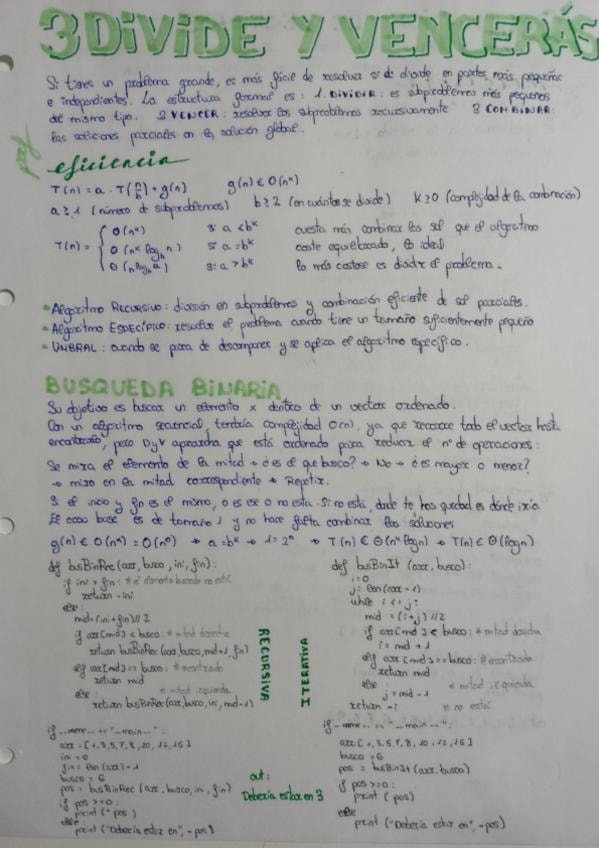 3 DIVIDE Y VENCERÁS
Si tienes un problema grande, es más fácil de resolver si se divide en partes más pequeñas
e independientes. La estructura formal es: 1. DIVIDIR: es subproblemas más pequeños
del mismo tipo. 2 VENCER: resolver los subproblemas recursivamente 3 COMBINAR:
las soluciones parciales en la solución global.
eficiencia
T(n) = a · T(n/b) + g(n)   g(n) ∈ O(n^k)
a ≥ 1 (número de subproblemas)   b ≥ 2 (en cuántos se divide)   k ≥ 0 (complejidad de la combinación)
T(n) = { Θ(n^k)   si a < b^k   cuesta más combinar las sol que el algoritmo
Θ(n^k log_b n)   si a = b^k   coste equilibrado, lo ideal
Θ(n^log_b a)   si a > b^k   lo más costoso es dividir el problema.
• Algoritmo RECURSIVO: división en subproblemas y combinación eficiente de sol parciales.
• Algoritmo ESPECÍFICO: resuelve el problema cuando tiene un tamaño suficientemente pequeño
• UMBRAL: cuando se para de descomponer y se aplica el algoritmo específico.
BUSQUEDA BINARIA
Su objetivo es buscar un elemento x dentro de un vector ordenado.
Con un algoritmo secuencial, tendría complejidad O(n), ya que recorre todo el vector hasta
encontrarlo, pero DyV aprovecha que está ordenado para reducir el nº de operaciones:
Se mira el elemento de la mitad → ¿es el que busco? → No → ¿es mayor o menor?
→ miro en la mitad correspondiente → Repetir.
Si el inicio y fin es el mismo, o es ese o no esta. Si no está, donde te has quedado es dónde iría
El caso base es de tamaño 1 y no hace falta combinar las soluciones
g(n) ∈ O(n^k) = O(n^0) → a = b^k → 1 = 2^0 → T(n) ∈ Θ(n^k log n) → T(n) ∈ Θ(log n)
def busBinRec (arr, busco, ini, fin):
if ini > fin: # el elemento buscado no está
return -ini
else:
mid = (ini + fin) // 2
if arr[mid] < busco: # mitad derecha
return busBinRec (arr, busco, mid+1, fin)
elif arr[mid] == busco: # encontrado
return mid
else: # mitad izquierda
return busBinRec (arr, busco, ini, mid-1)
RECURSIVA
if __name__ == "__main__":
arr = [1, 3, 5, 7, 8, 10, 12, 15]
ini = 0
fin = len(arr) - 1
busco = 6
pos = busBinRec (arr, busco, ini, fin)
if pos >= 0:
print (" pos)
else
print ("Debería estar en", -pos)
out:
Debería estar en 3
ITERATIVA
def busBinIt (arr, busco):
i = 0
j = len(arr - 1)
while i <= j:
mid = (i + j) // 2
if arr[mid] < busco: # mitad derecha
i = mid + 1
elif arr[mid] == busco: # encontrado
return mid
else: # mitad izquierda
j = mid - 1
return -i # no está
if __name__ == "__main__":
arr = [1, 3, 5, 7, 8, 10, 12, 15]
busco = 6
pos = busBinIt (arr, busco)
if pos >= 0:
print (pos)
else
print ("Debería estar en", -pos)